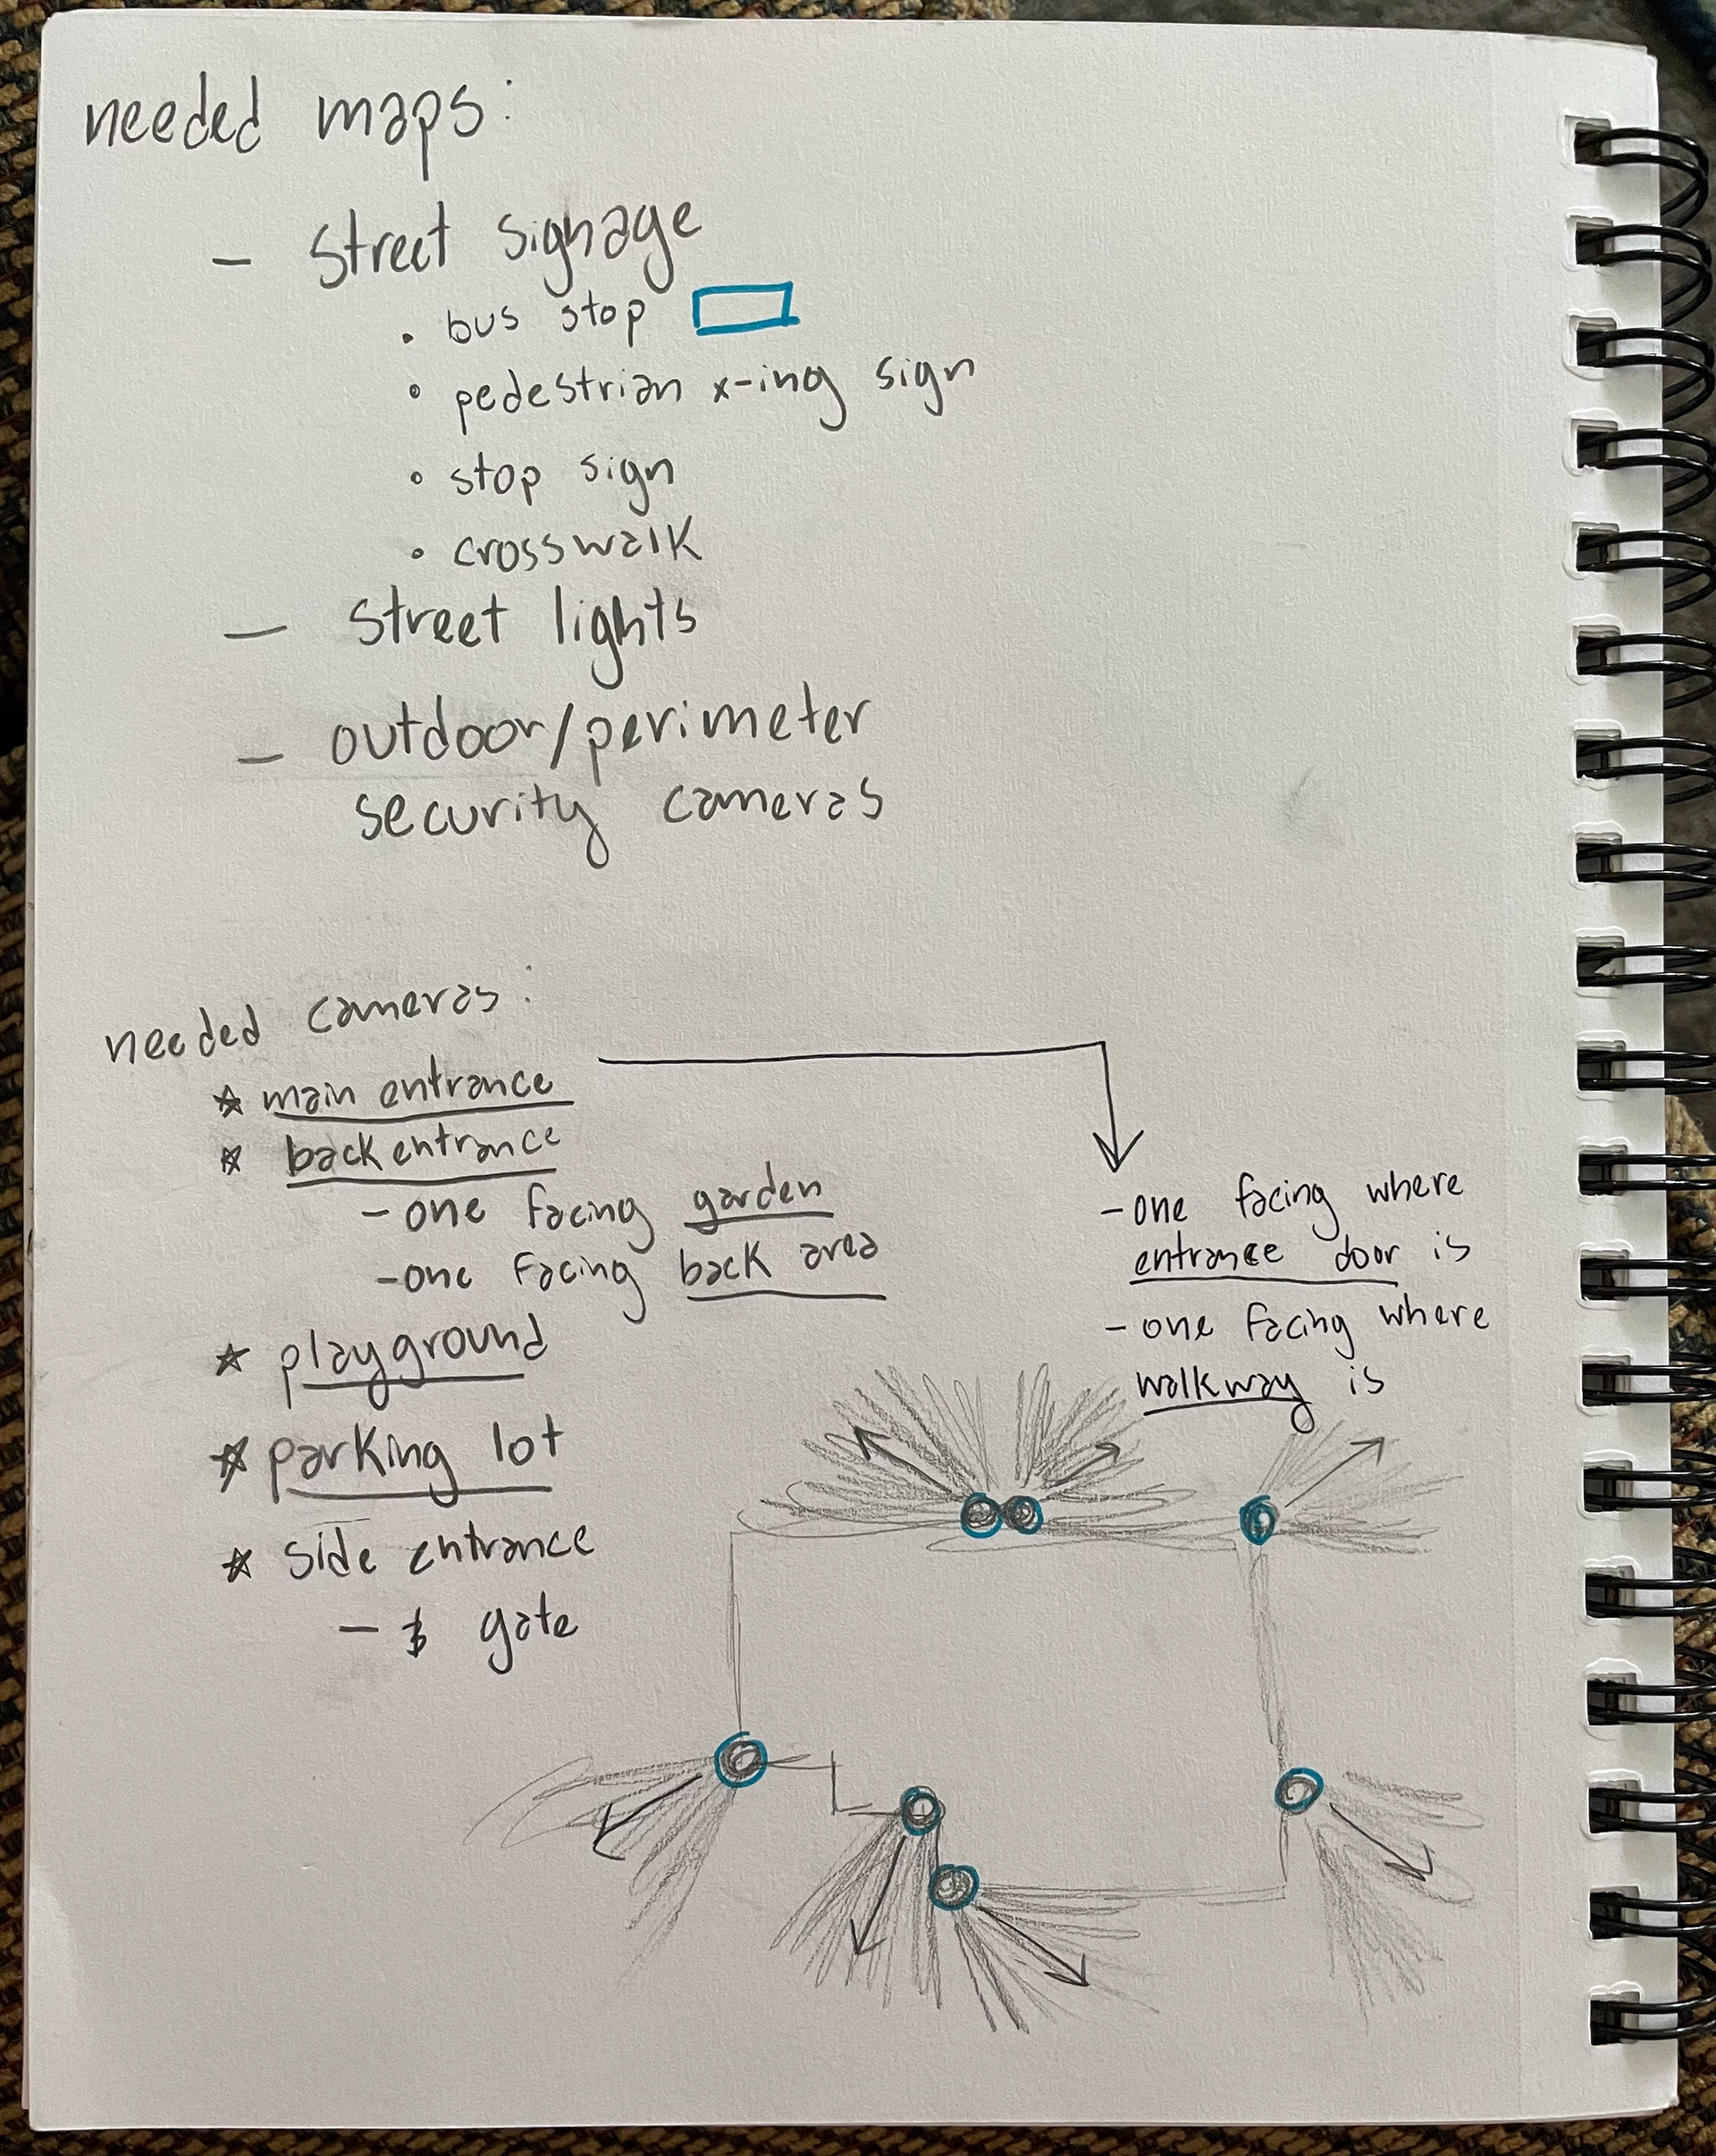 needed maps:
- street signage
• bus stop
• pedestrian x-ing sign
• stop sign
• crosswalk
- street lights
- outdoor/perimeter
security cameras
needed cameras:
☆ main entrance
☆ back entrance
- one facing garden
- one facing back area
☆ playground
☆ parking lot
☆ side entrance
- gate
- one facing where
entrance door is
- one facing where
walkway is